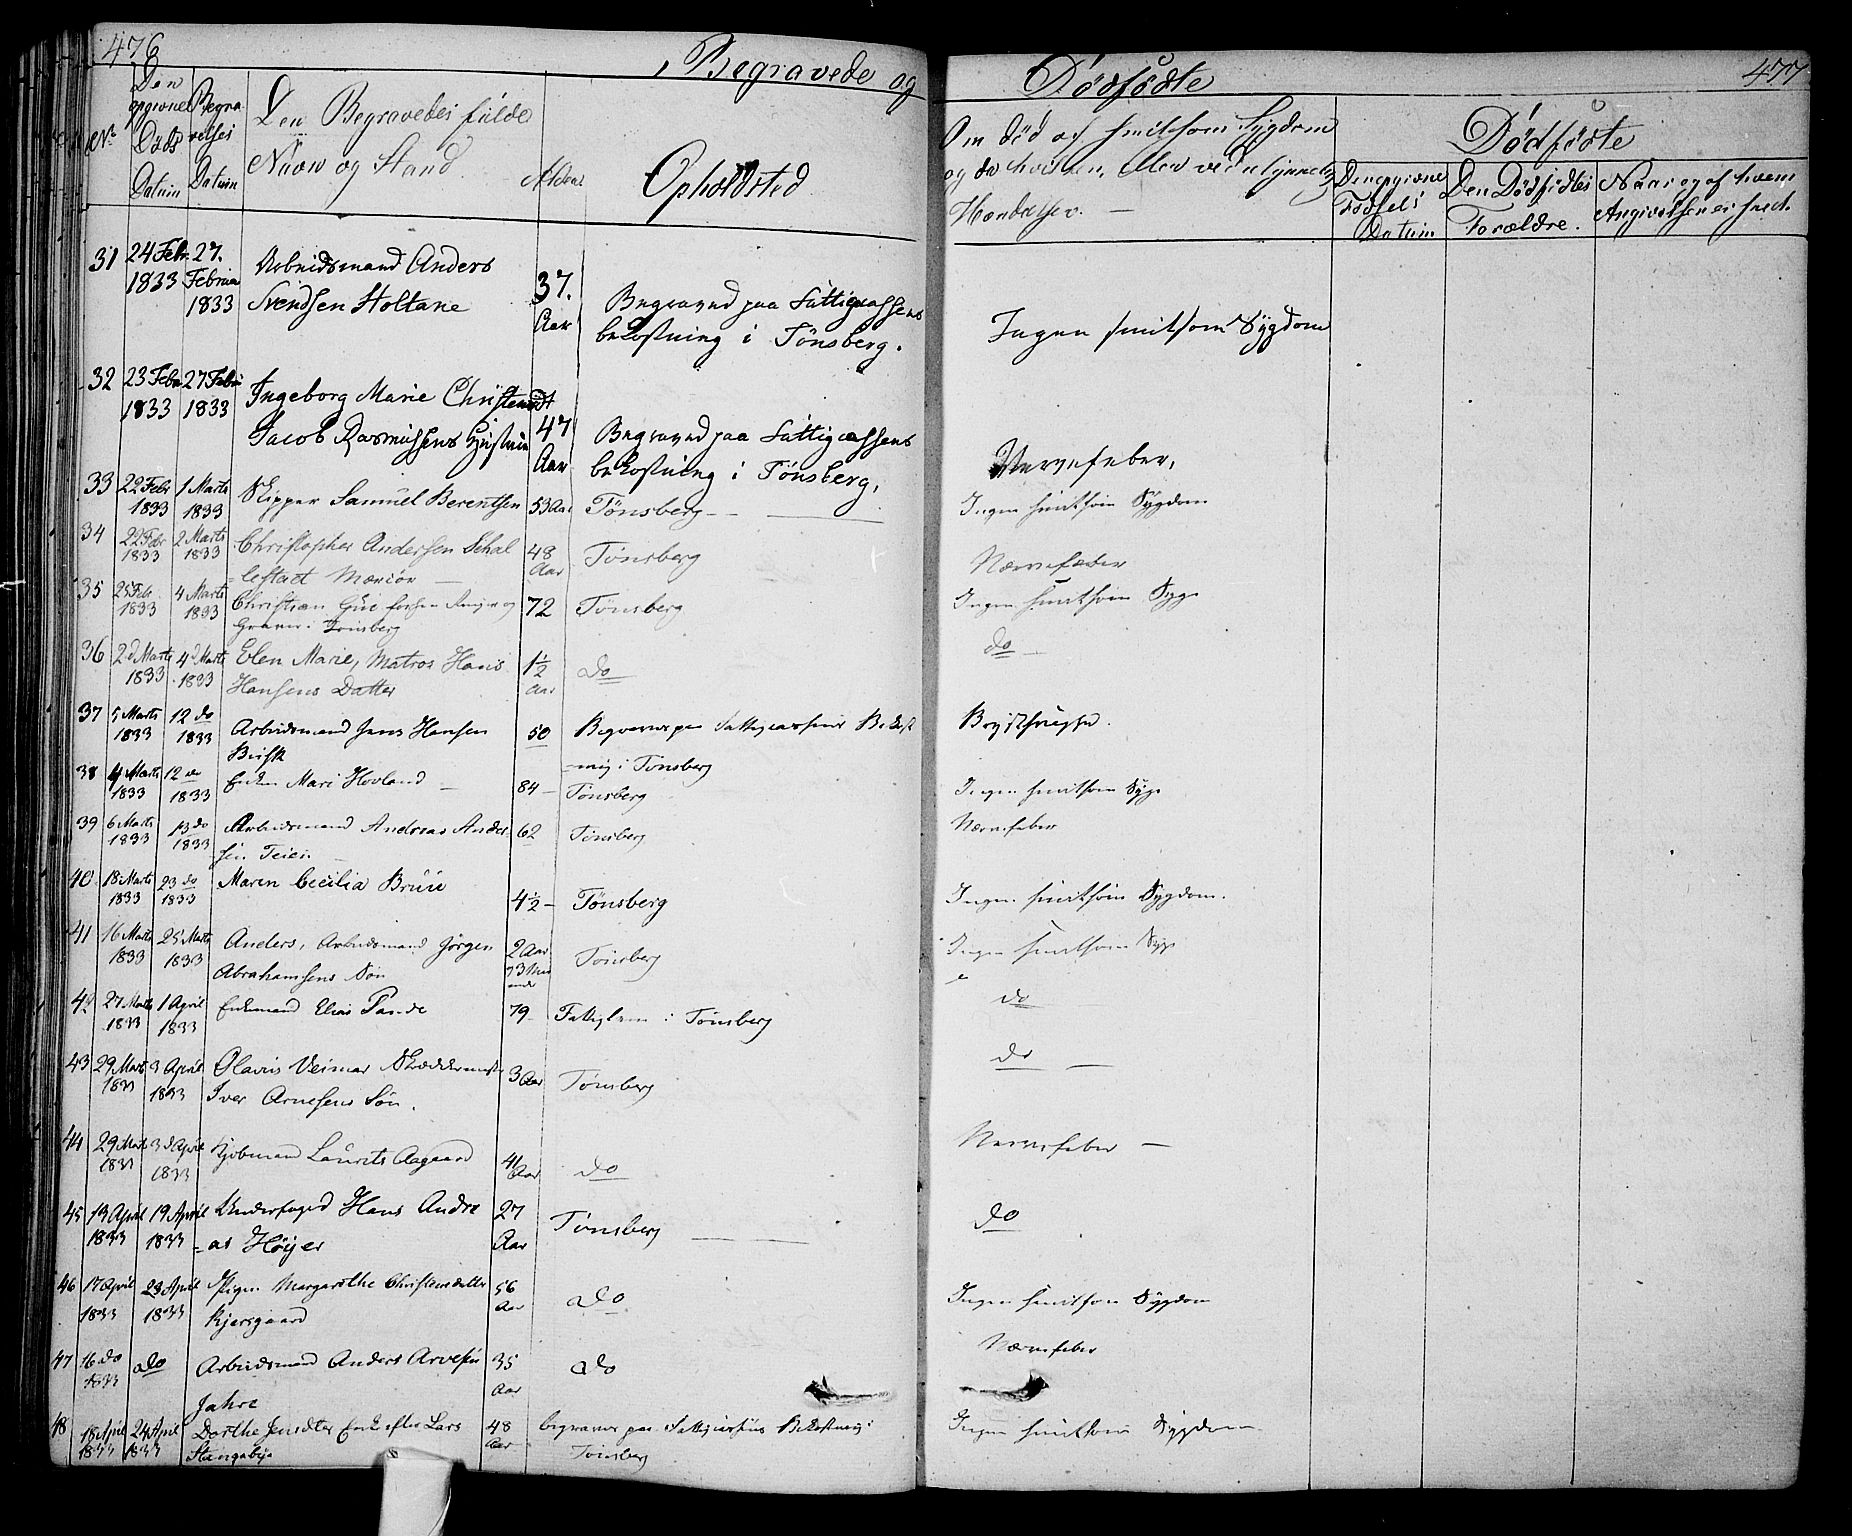 476
Begravede og
Dødfødte
477
No
Den opgivne Døds Datum
Begravelses Datum
Den Begravedes fulde
Navn og Stand
Alder
Opholdsted
Om død af smitsom Sygdom
og da hvilken, eller ved ulykkelig
Hændelse. —
Dødfødte
Den opgivne Fødsels Datum
Den Dødfødtes Forældre.
Naar og af hvem Angivelsen er skeed.
31 24 Febr. 1833 27. Februar 1833 Arbeidsmand Anders
Svendsen Holtane 37. Aar Begraved paa Fattigcassens
bekostning i Tønsberg. Ingen smitsom Sygdom
32 23 Febr 1833 27 Febr 1833 Ingeborg Marie Christensdt
Jacob Rasmussens Hustrue 47 Aar Begraved paa Fattigcassens
bekostning i Tønsberg. Nervefeber,
33 22 Febr 1833 1 Marts 1833 Skipper Samuel Berentsen 53 Aar Tønsberg — Ingen smitsom Sygdom
34 22 Febr 1833 2 Marts 1833 Christopher Andersen Schal
=lestaet 48 Aar Tønsberg Nervefeber
35 25 Febr. 1833 4 Marts 1833 Christian og
Graver i Tønsberg 72 Tønsberg Ingen smitsom Syge
36 2d Marts 1833 4d Marts 1833 Elen Marie, Matros Hans
Hansens Datter 1½ Aar do do —
37 5 Marts 1833 12 do 1833 Arbeidsmand Jens Hansen
50 Begraves paa Fattigcassens Bekost
=ning i Tønsberg Brystsyge.
38 4 Marts 1833 12 do 1833 Enken Mari Hovland — 84 — Tønsberg Ingen smitsom Syge
39 6 Marts 1833 13 do 1833 Arbeidsmand Andreas Ander
sen Teien 62 Tønsberg Nervefeber
40 18 Marts 1833 23 do 1833 Maren Cecilia Bruu 4½ — Tønsberg Ingen smitsom Sygdom.
41 16 Marts 1833 25 Marts 1833 Anders, Arbeidsmand Jørgen
Abrahamsens Søn 2 Aar Tønsberg Ingen smitsom Syge
42 27 Marts 1833 1 April 1833 Enkemand Elias 79 — Fattiglem i Tønsberg do
43 29 Marts 1833 3 April 1833 Olavus Veimar Skræddermester
Iver Arnesens Søn. 3 Aar Tønsberg do —
44 29 Marts 1833 3d April 1833 Kjøbmand Laurits Aagaard 41 Aar do Nervefeber —
45 13 April 1833 19 April 1833 Underfoged Hans Andre
=as Höyer 27 Aar Tønsberg — do
46 17 April 1833 23 April 1833 Pigen Margarethe Christensdatter
Kjersgaard 56 Aar do Ingen smitsom Sygdom
47 16 do 1833 do Arbeidsmand Anders Arvesen
Jahre 35 Aar do Nervefeber
48 18 April 1833 24 April 1833 Dorthe Jensdter Enke efter Lars
Stangebye 48 Aar begraves paa Fattigcassens Bekostning i
Tønsberg Ingen smitsom Sygdom